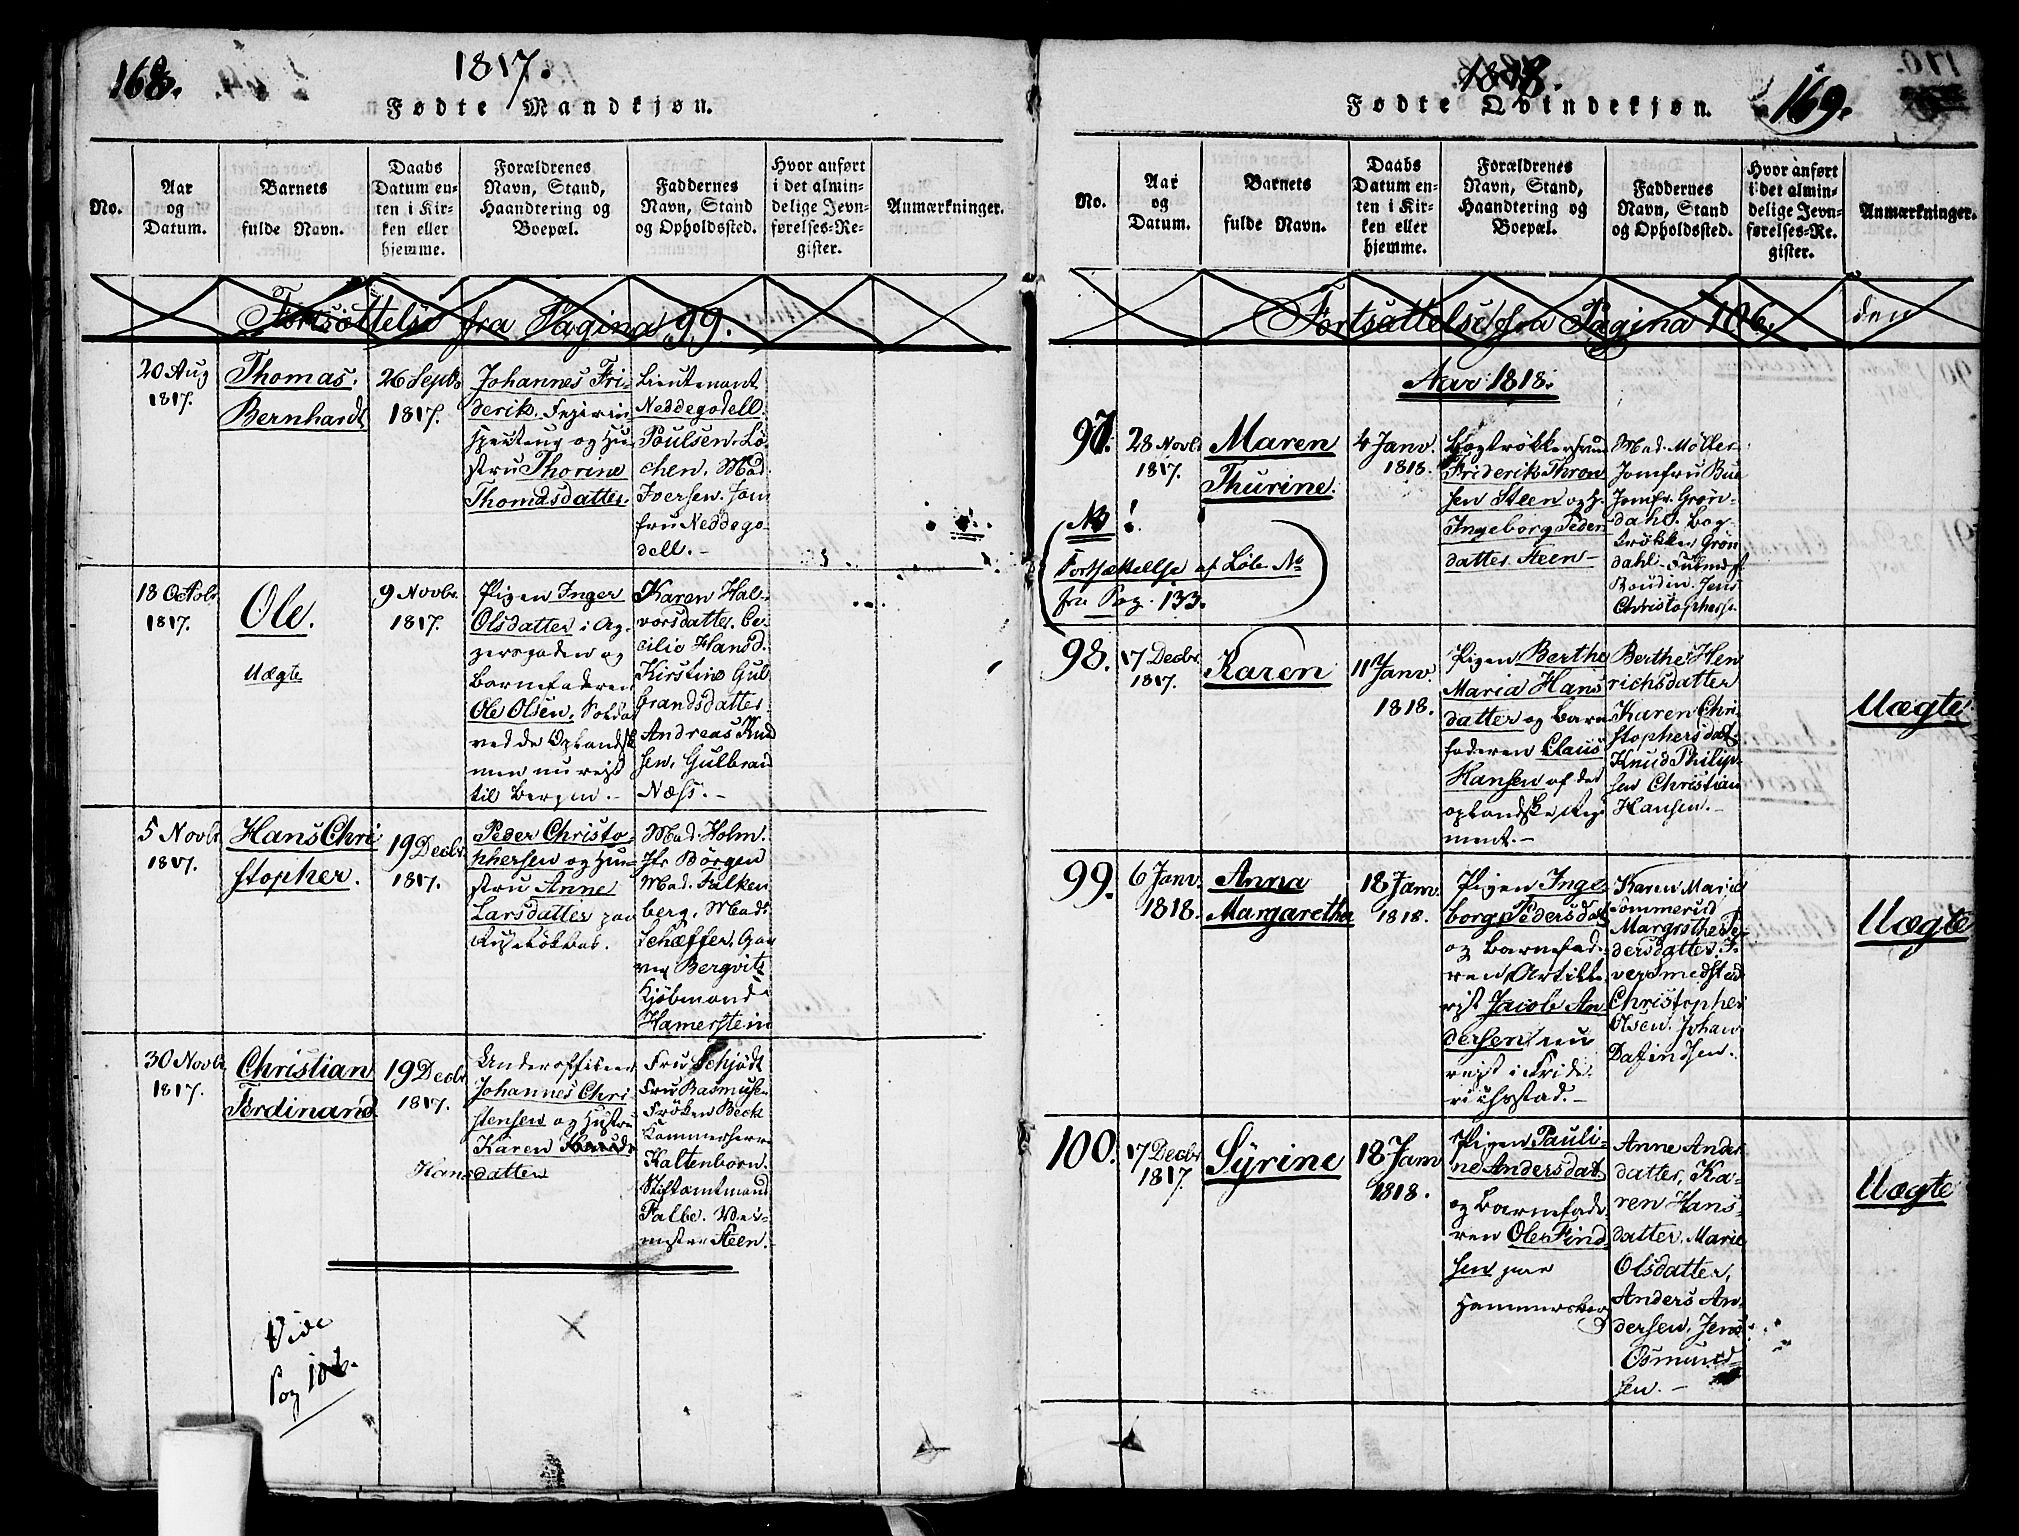 168.
1817.
Fødte Mandkjøn.
No.
Aar
og
Datum.
Barnets
fulde Navn.
Daabs
Datum en-
ten i Kir-
ken eller
hjemme.
Forældrenes
Navn, Stand,
Haandtering og
Boepæl.
Faddernes
Navn, Stand
og Opholdssted.
Hvor anført
i det almin-
delige Jevn-
førelses-Re-
gister.
Anmærkninger.
Fortsættelse fra Pagina 99.
20 Aug
1817.
Thomas
Bernhardt
26 Septb
1817.
Johannes Fri-
derik
og Hu-
stru Thorine
Thomasdatter.
Lieutenant
Neddegodell.
Poulsen. Lö-
chen. Mad.
Iversen. Jom
fru Neddego-
dell.-
18 Octob.
1817.
Ole.
Uægte
9 Novbr.
1817.
Pigen Inger
Olsdatter i Ag-
gersgaden og
Barnefaderen
Ole Olsen, Soldat
ved de Oplandsk
men nu reist
til Bergen.-
Karen Hal-
vorsdatter. Ce-
cilie Hansd.
Kirstine Gul
brandsdatter
Andreas Knud
sen, Gulbran
Næss.-
5 Novbr
1817.
Hans Chri
stopher.
19 Decbr.
1817.
Peder Christo-
phersen og Hu-
stru Anne
Larsdatter paa
Mad. Holm.
Hr Börgen
Mad. Falken
berg, Mads
Schæffer, Gar
ver Bergvitz
Kjöbmand
Hamerstein
30 Novbr
1817.
Christian
Ferdinand.
19 Decbr
1817.
Underofficeer
Johannes Chri
stensen og Hustru
Karen
Hansdatter
Fru Schjödt
Fru Rasmusen
Fröken Beck
Kammerherre
Kaltenborn.
Stiftamtmand
Falbe.
Steen.-
Vide
Pag 106.
1818.
Fødte Qvindekjøn.
169.
170.
No.
Aar
og
Datum.
Barnets
fulde Navn.
Daabs
Datum en-
ten i Kir-
ken eller
hjemme.
Forældrenes
Navn, Stand,
Haandtering og
Boepæl.
Faddernes
Navn, Stand
og Opholdssted.
Hvor anført
i det almin-
delige Jevn-
førelses-Re-
gister.
Anmærkninger.
Fortsættelse fra Pagina 106. den
Aar 1818.
97.
28 Novbr.
1817.
Maren
Thurine.
4 Janv.
1818.
Bogtrökkersvend
Friderik Thron
sen Steen og H.
Ingeborg Peder
datter Steen-
Mad. Möller
Jomfru Bue
Jomfr. Grön-
dahl. Bog-
trökker Grön
dahl.
Boudin. Jens
Christophersen.
NB!
Fortsættelse af Löbe No
fra Pag. 133.
98.
17 Decbr.
1817.
Karen
11 Janv.
1818.
Pigen Berthe
Maria Hans
datter og Barne
faderen Claus
Hansen af det
oplandske Regi
ment.-
Berthe Hen
richsdatter
Karen Chri-
stophersdatt
Knud Philip-
sen Christian
Hansen.-
Uægte
99.
6 Janv.
1818.
Anna
Margaretha
18 Janv.
1818.
Pigen Inge-
borg Pedersdat
og Barnefad-
eren Artille
rist Jacob An
dersen nu
reist i Fride
richsstad.-
Karen Marie
Sommerud
Margrethe Pe-
dersdatter. I-
ver Smedstad
Christopher
Olsen. Johan
Dafindsen.
Uægte
100.
17 Decbr
1817.
Syrine
18 Janv
1818.
Pigen Pauli-
ne Andersdat.
og Barnefade-
ren Ole Find-
sen paa
Hammersborg
Anne Ander
datter, Ka-
ren Hans-
datter. Marie
Olsdatter,
Anders An-
dersen. Jens
Osmund-
sen.-
Uægte